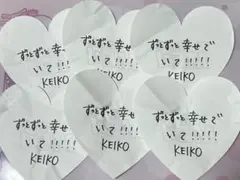 ずっとずっと幸せで
いて!!!!!
KEIKO
ずっとずっと幸せで
いて!!!!!
KEIKO
ずっとずっと幸せで
いて!!!!!
KEIKO
ずっとずっと幸せで
いて!!!!!
KEIKO
ずっとずっと幸せで
いて!!!!!
KEIKO
ずっとずっと幸せで
いて!!!!!
KEIKO